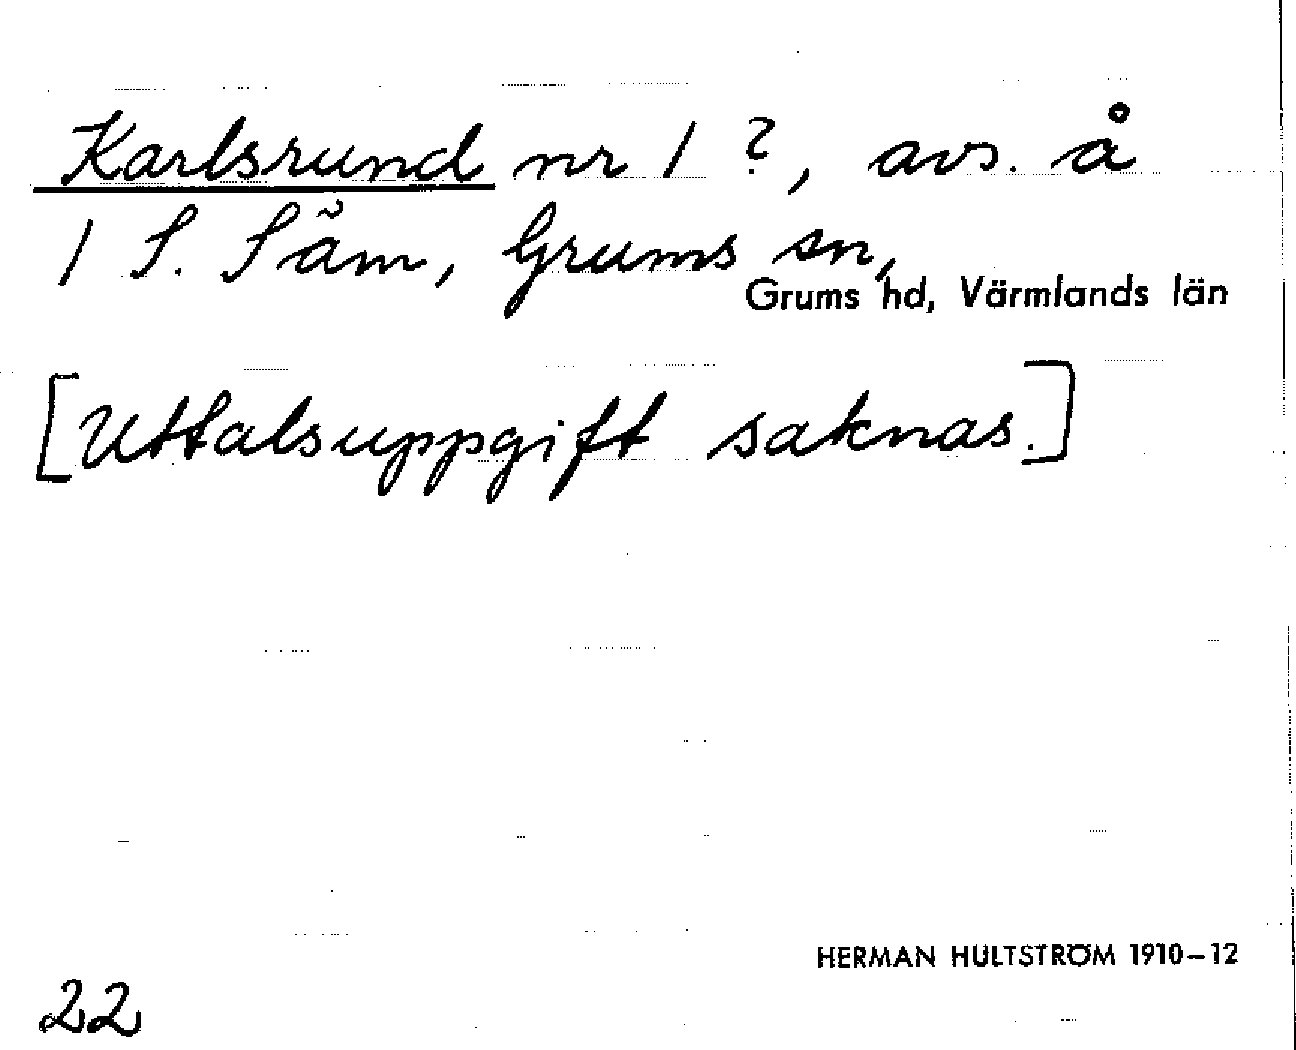 Karlsrund nr 1 ?, avs. å
1 S. Säm, Grums sn,
Grums hd, Värmlands län
[Uttalsuppgift saknas.]
HERMAN HULTSTRÖM 1910–12
22